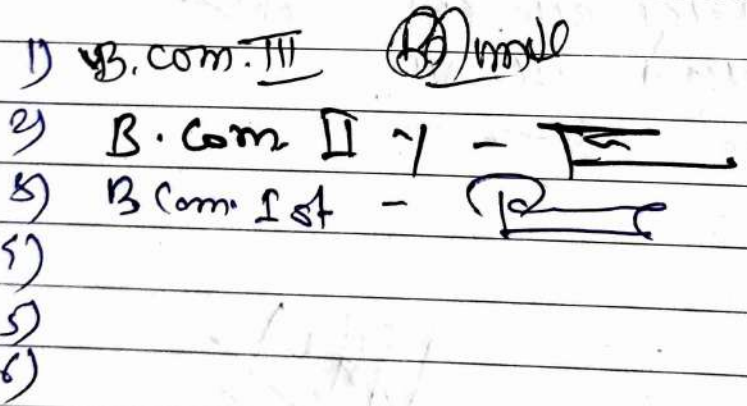 1) B. Com. III
2) B. Com II y -
3) B Com. I st -
4)
5)
6)